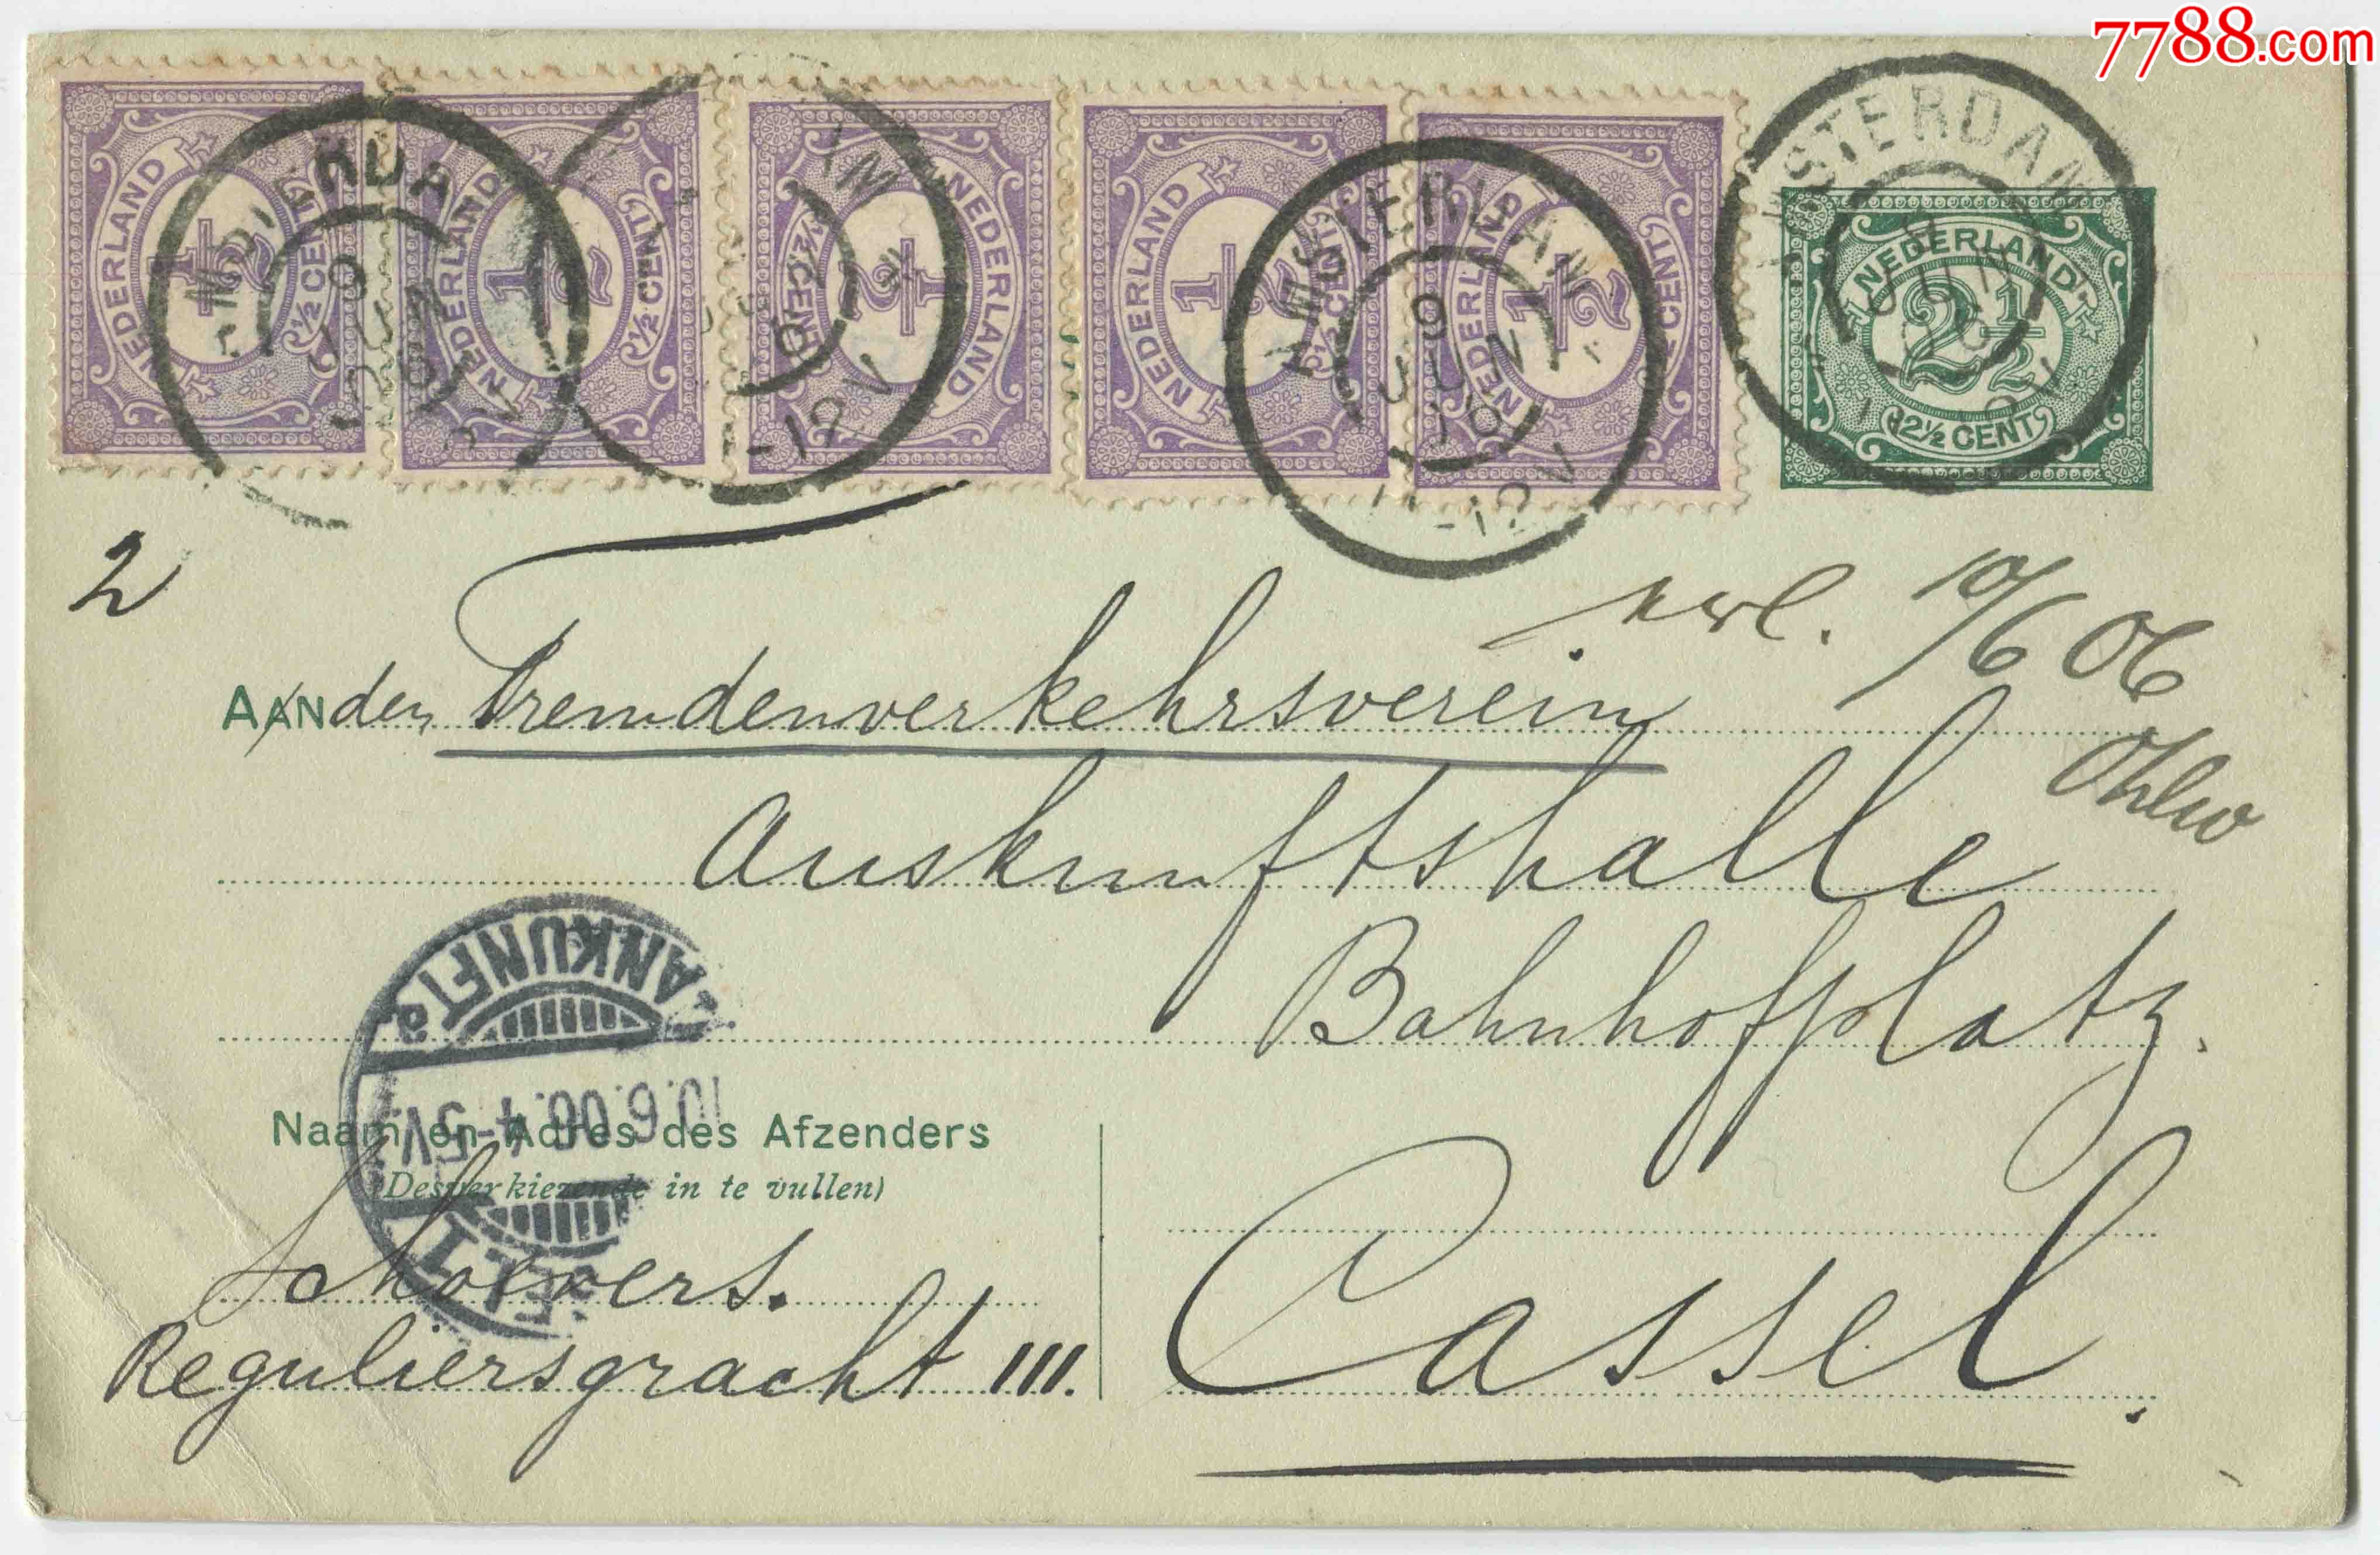 7788.com
NEDERLAND ½ CENT
NEDERLAND ½ CENT
NEDERLAND ½ CENT
NEDERLAND ½ CENT
NEDERLAND ½ CENT
NEDERLAND 2½ 2½ CENT
AMSTERDAM
AMSTERDAM
9 JUN
2
10/6 06
AAN den Fremdenverkehrsverein
Auskunftshalle
Bahnhofplatz.
ANKUNFT
10.6.06. 4-5V.
Naam en Adres des Afzenders
(Desverkiezende in te vullen)
Reguliersgracht 111.
Cassel.